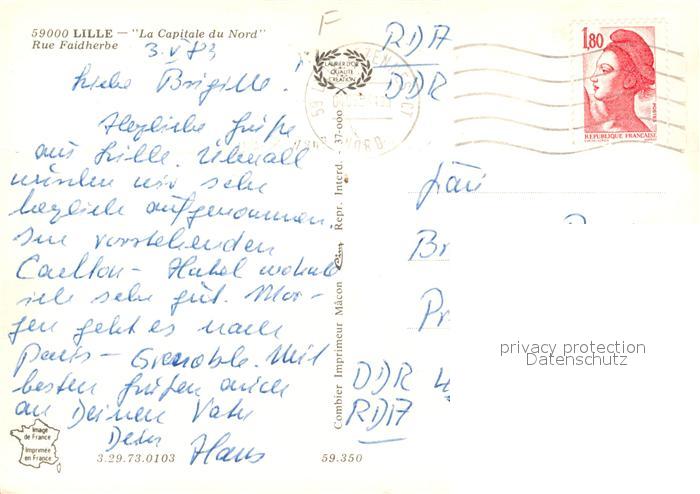 59000 LILLE — "La Capitale du Nord"
Rue Faidherbe
3. V 83
Liebe Brigitte.
Herzliche Grüße
aus Lille. Überall
würden wir sehr
herzlich aufgenommen.
Im vorstehenden
Carlton-Hotel wohne
ich sehr gut. Mor-
gen geht es nach
Paris – Grenoble. Mit
besten Grüßen auch
an Deinen Vater
Dein Hans
Image
de France
Imprimée
en France
3.29.73.0103
59.350
Combier Imprimeur Mâcon Cim Repr. Interd. - 37-000
F
LAURIER D'OR
QUALITE
CREATION
59
NORD
RDA
DDR
1,80
POSTES
REPUBLIQUE FRANÇAISE
Br
Pr
DDR
RDA
privacy protection
Datenschutz